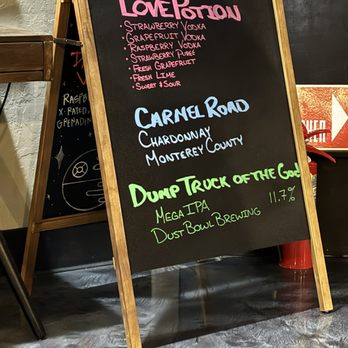 LOVE POTION
• STRAWBERRY VODKA
• GRAPEFRUIT VODKA
• RASPBERRY VODKA
• STRAWBERRY PUREE
• FRESH GRAPEFRUIT
• FRESH LIME
• SWEET & SOUR
CARMEL ROAD
CHARDONNAY
MONTEREY COUNTY
DUMP TRUCK OF THE GOD
MEGA IPA 11.7%
DUST BOWL BREWING
RASPB
X-RATED
GRENADIN